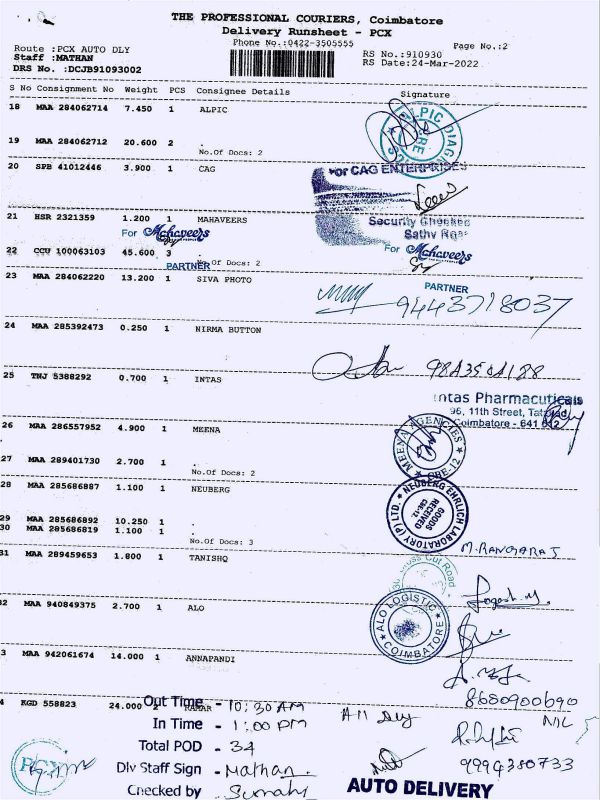 THE PROFESSIONAL COURIERS, Coimbatore
Delivery Runsheet - PCX
Phone No.:0422-3505555
Page No.:2
Route :PCX AUTO DLY
RS No.:910930
Staff :MATHAN
RS Date:24-Mar-2022
DRS No. :DCJB91093002
S No Consignment No Weight PCS Consignee Details Signature
18 MAA 284062714 7.450 1 ALPIC
19 MAA 284062712 20.600 2 .
No.Of Docs: 2
20 SPB 41012446 3.900 1 CAG
For CAG ENTERPRISES
Security Checked
21 HSR 2321359 1.200 1 MAHAVEERS
For Mahaveers
For Mahaveers
22 CCU 100063103 45.600 3 .
No.Of Docs: 2
PARTNER
PARTNER
23 MAA 284062220 13.200 1 SIVA PHOTO
9443718037
24 MAA 285392473 0.250 1 NIRMA BUTTON
25 TNJ 5388292 0.700 1 INTAS
Intas Pharmaceuticals
96, 11th Street,
Coimbatore - 641 012
26 MAA 286557952 4.900 1 MEENA
MEENA AGENCIES
CBE-12
27 MAA 289401730 2.700 1 .
No.Of Docs: 2
28 MAA 285686887 1.100 1 NEUBERG
NEUBERG EHRLICH LABORATORY (P) LTD.
GOODS
RECEIVED
CBE-12
29 MAA 285686892 10.250 1 .
30 MAA 285686819 1.100 1 .
No.Of Docs: 3
M. RANGARAJ
31 MAA 289459653 1.800 1 TANISHQ
Cut Road
32 MAA 940849375 2.700 1 ALO
ALO LOGISTIC
COIMBATORE
3 MAA 942061674 14.000 1 ANNAPANDI
8680900690
4 KGD 558823 24.000
Out Time - 10:30 AM
In Time - 1:00 PM
Total POD - 34
Dlv Staff Sign - Mathan.
Checked by -
All Dly
NIL
9994380733
PCX
AUTO DELIVERY